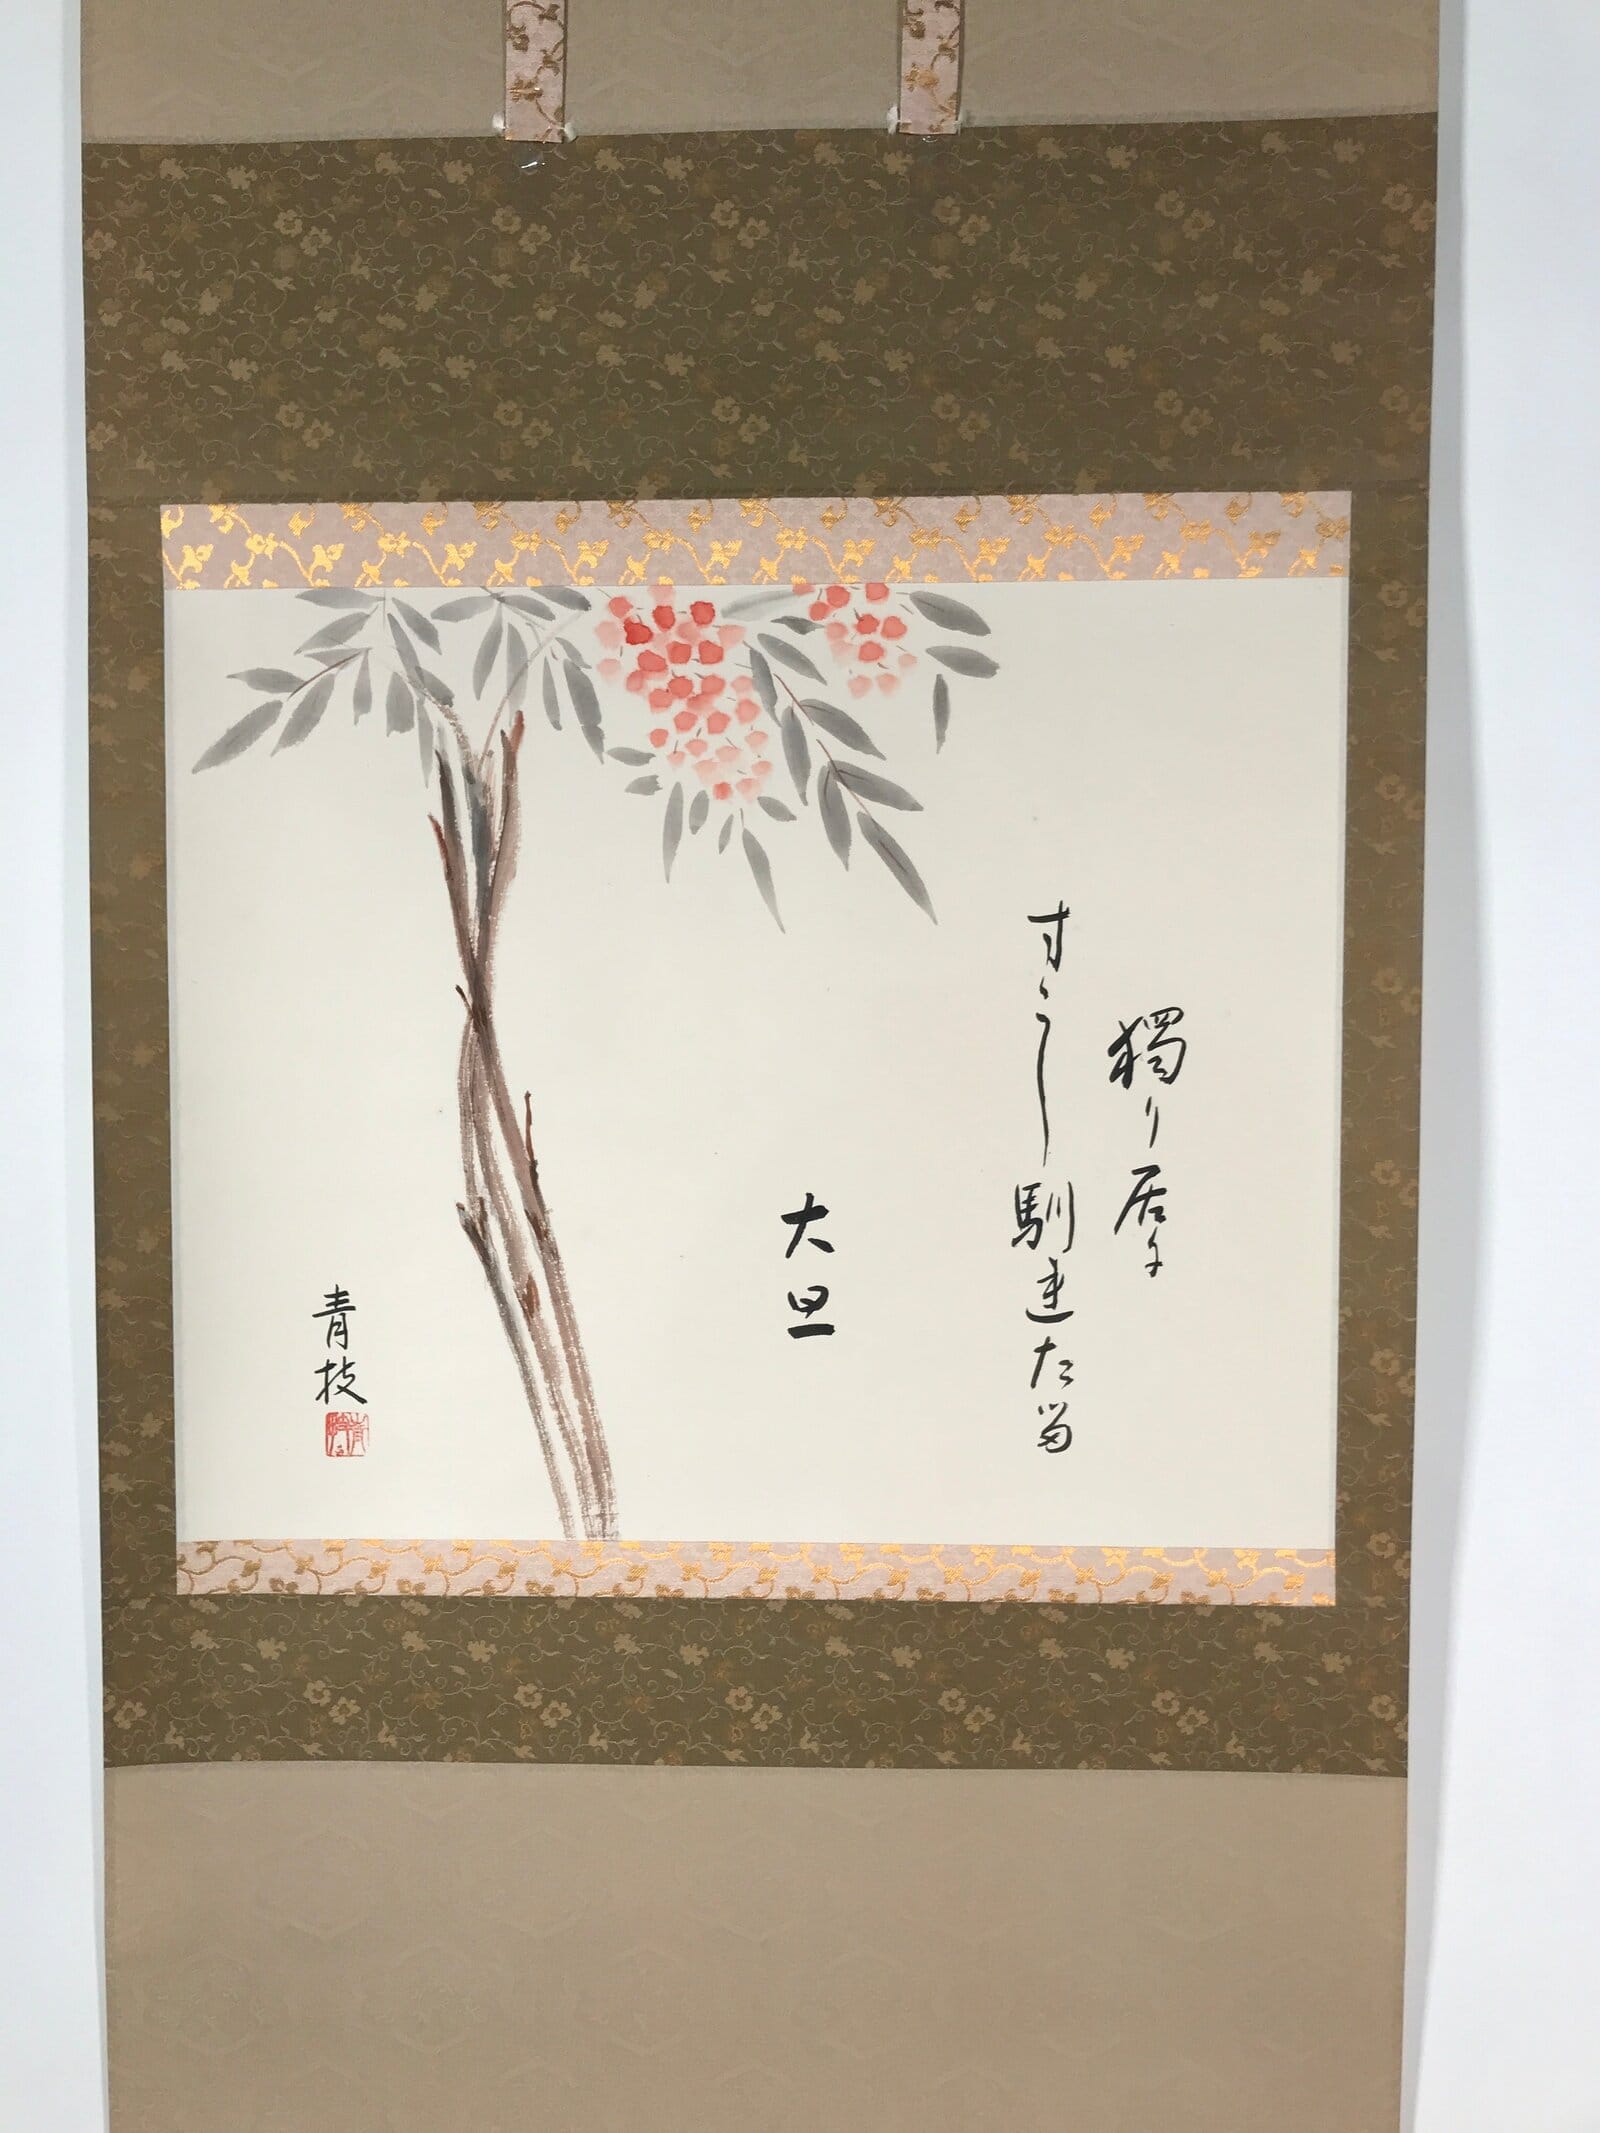 獨り居に
すこし馴れたる
大旦
青枝